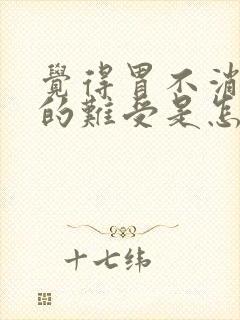 覺得胃不消
的難受是怎
十七纬